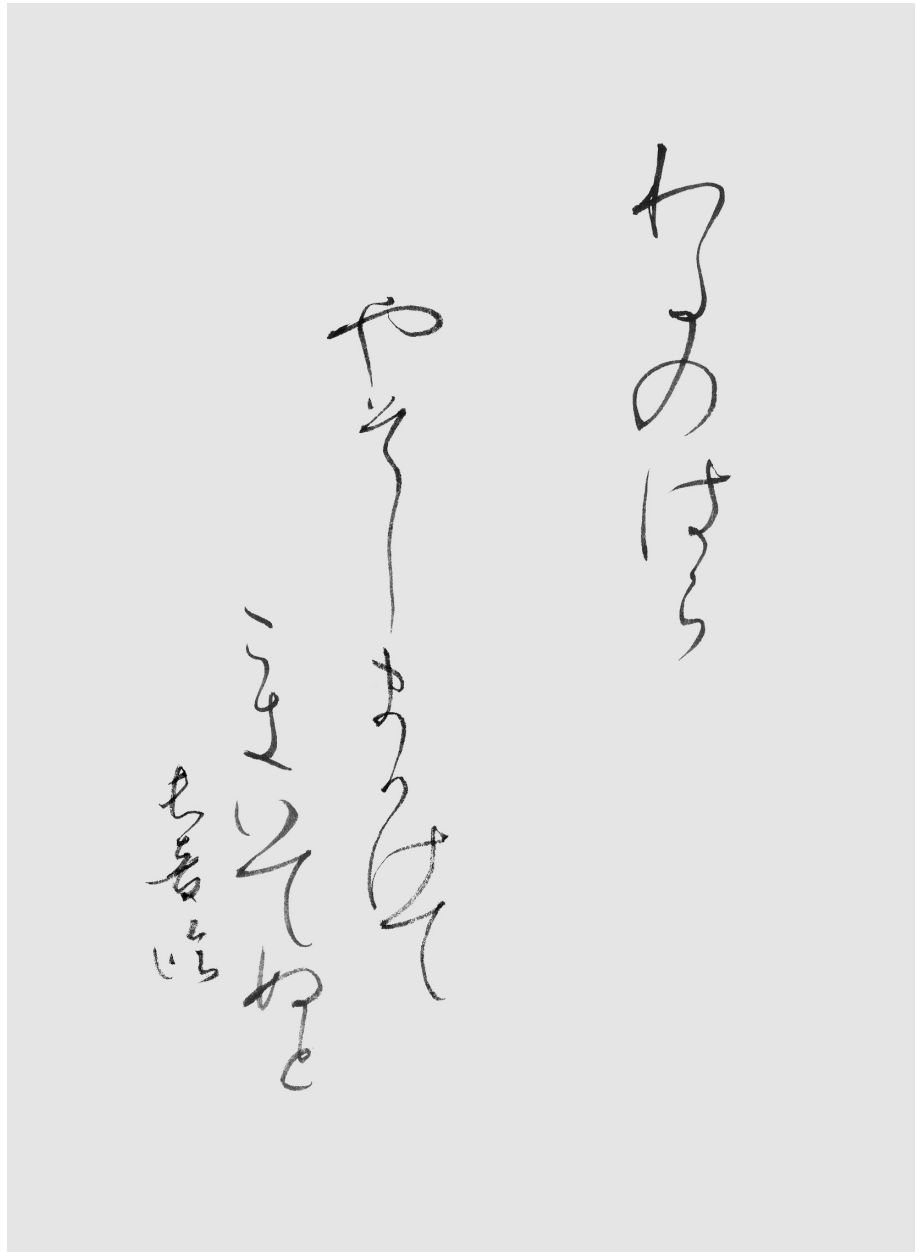 わたのはら
やそしまかけて
こきいてぬと
臨